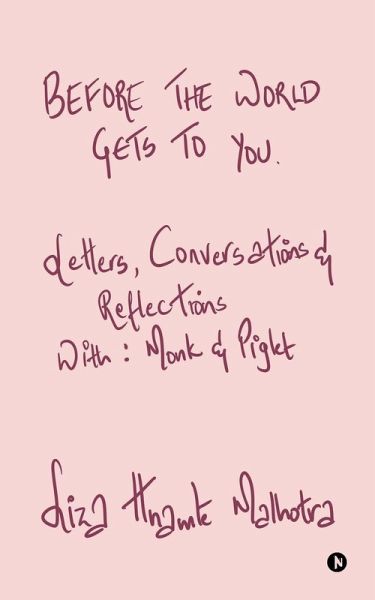 BEFORE THE WORLD
GETS TO YOU.
Letters, Conversations &
Reflections
With : Monk & Piglet
Liza Hnamte Malhotra
N